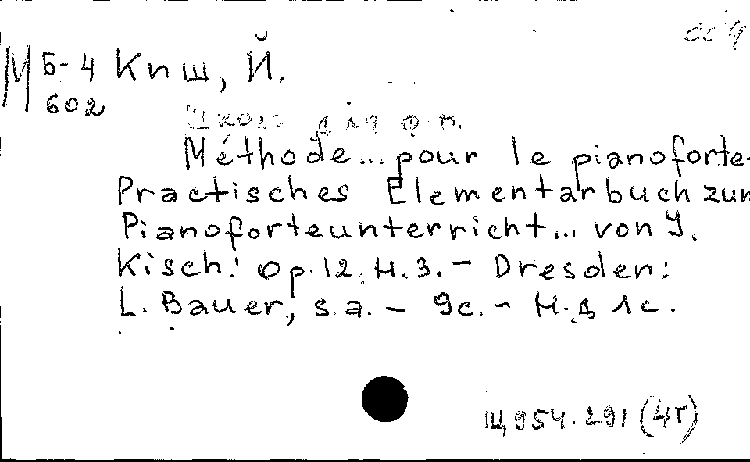 М Б-4 Киш, Й.
602
Школа для ф-п.
Méthode... pour le pianoforte-
Practisches Elementarbuch zum
Pianoforteunterricht... von J.
Kisch: Op.12. H.3. - Dresden:
L. Bauer, s.a. - 9с. - Н.д 1с.
Щ954.291 (4Г)